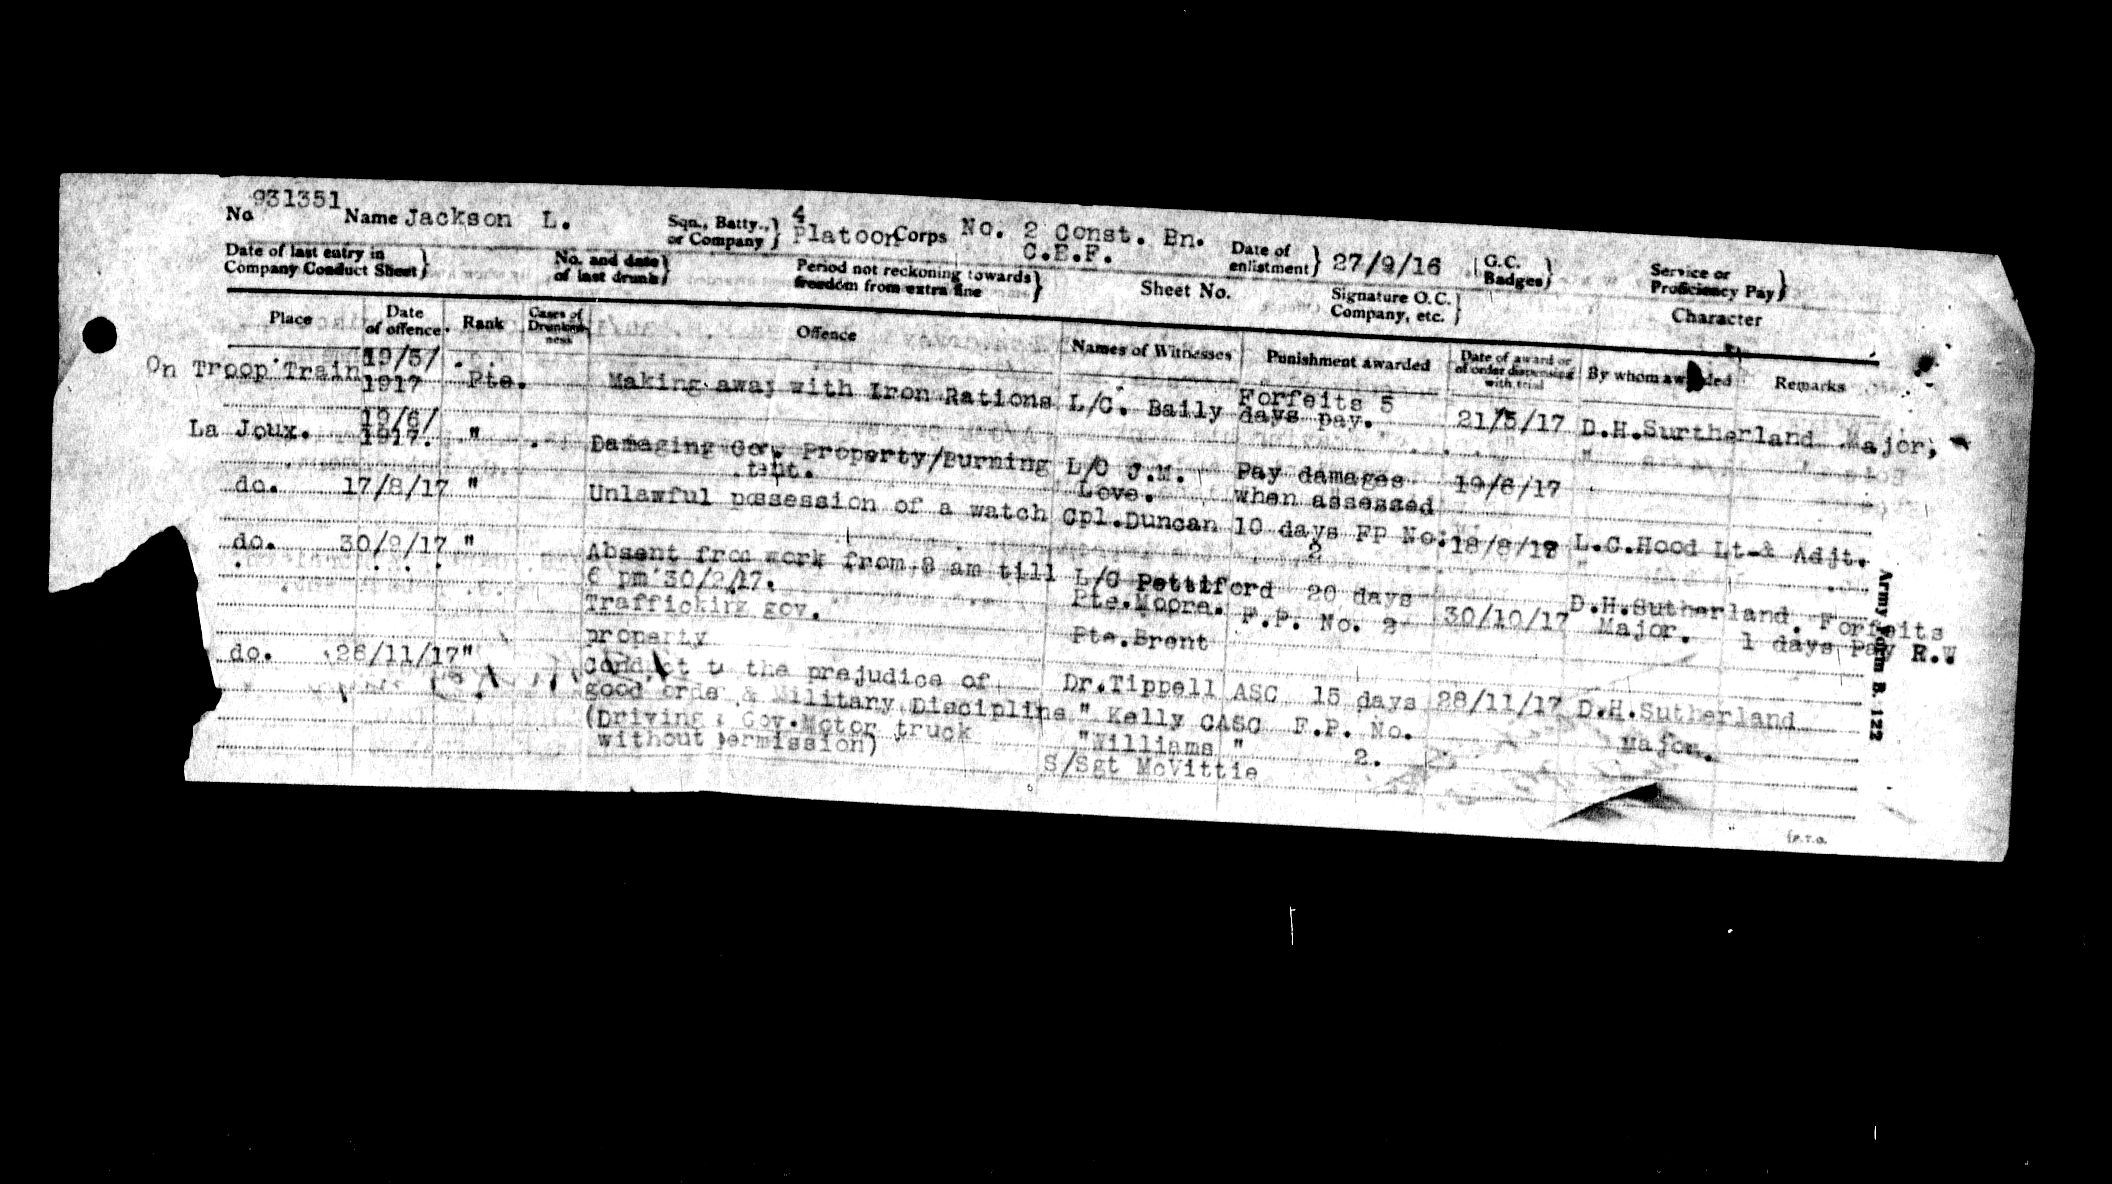 No 931351 Name Jackson L. Sqn., Batty., or Company } 4 Platoon Corps No. 2 Const. Bn. C.E.F. Date of enlistment } 27/9/16 G.C. Badges } Service or Proficiency Pay }
Date of last entry in Company Conduct Sheet } No. and date of last drunk } Period not reckoning towards freedom from extra fine } Sheet No. Signature O.C. Company, etc. } Character
Place Date of offence. Rank Cases of Drunkenness Offence Names of Witnesses Punishment awarded Date of award or of order dispensing with trial By whom awarded Remarks
On Troop Train 19/5/1917 Pte. Making away with Iron Rations L/C. Baily Forfeits 5 days pay. 21/5/17 D.H.Surtherland Major,
La Joux. 12/6/1917. " Damaging Gov. Property/Burning tent. L/C J.M. Love. Pay damages when assessed 19/6/17 "
do. 17/8/17 " Unlawful possession of a watch Cpl.Duncan 10 days FP No: 2 18/8/17 L.C.Hood Lt-& Adjt.
do. 30/ /17 " Absent from work from 8 am till L/C Pettiford 20 days D.H.Sutherland. Forfeits
6 pm 30/ /17. Pte.Moore. F.P. No. 2 30/10/17 Major. 1 days Pay R.W
Trafficking gov.
property Pte.Brent
do. 26/11/17 " Conduct to the prejudice of Dr.Tippell ASC 15 days 28/11/17 D.H.Sutherland
good order & Military Discipline " Kelly CASC F.P. No. Major.
(Driving Gov.Motor truck "Williams " 2.
without permission) S/Sgt McVittie
Army Form B. 122
(P.T.O.